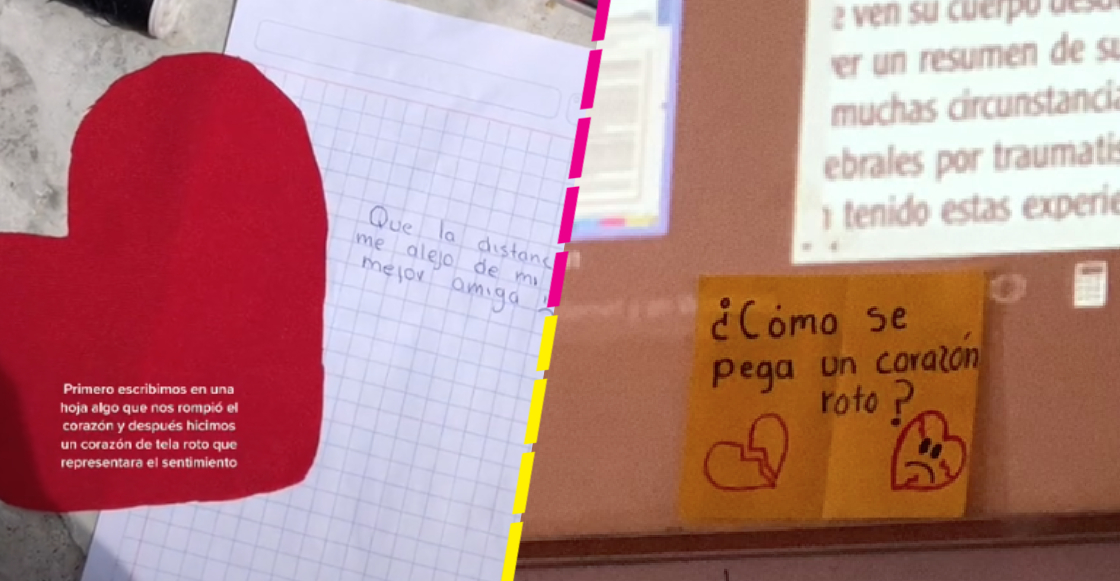 Que la distanc
me alejo de mi
mejor amiga
Primero escribimos en una
hoja algo que nos rompió el
corazón y después hicimos
un corazón de tela roto que
representara el sentimiento
e ven su cuerpo desd
er un resumen de su
muchas circunstanci
ebrales por traumatis
n tenido estas experie
¿Cómo se
pega un corazón
roto?